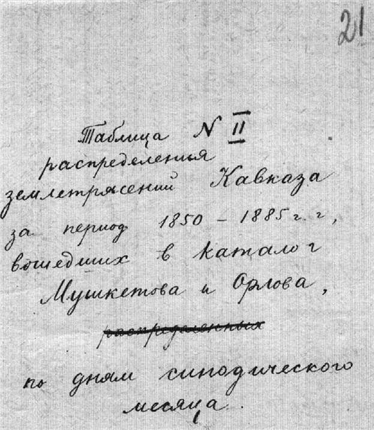 21
Таблица N II
распределенья
землетрясений Кавказа
за период 1850 – 1885 г. г,
вошедших в каталог
Мушкетова и Орлова,
распределенных
по дням синодического
месяца.